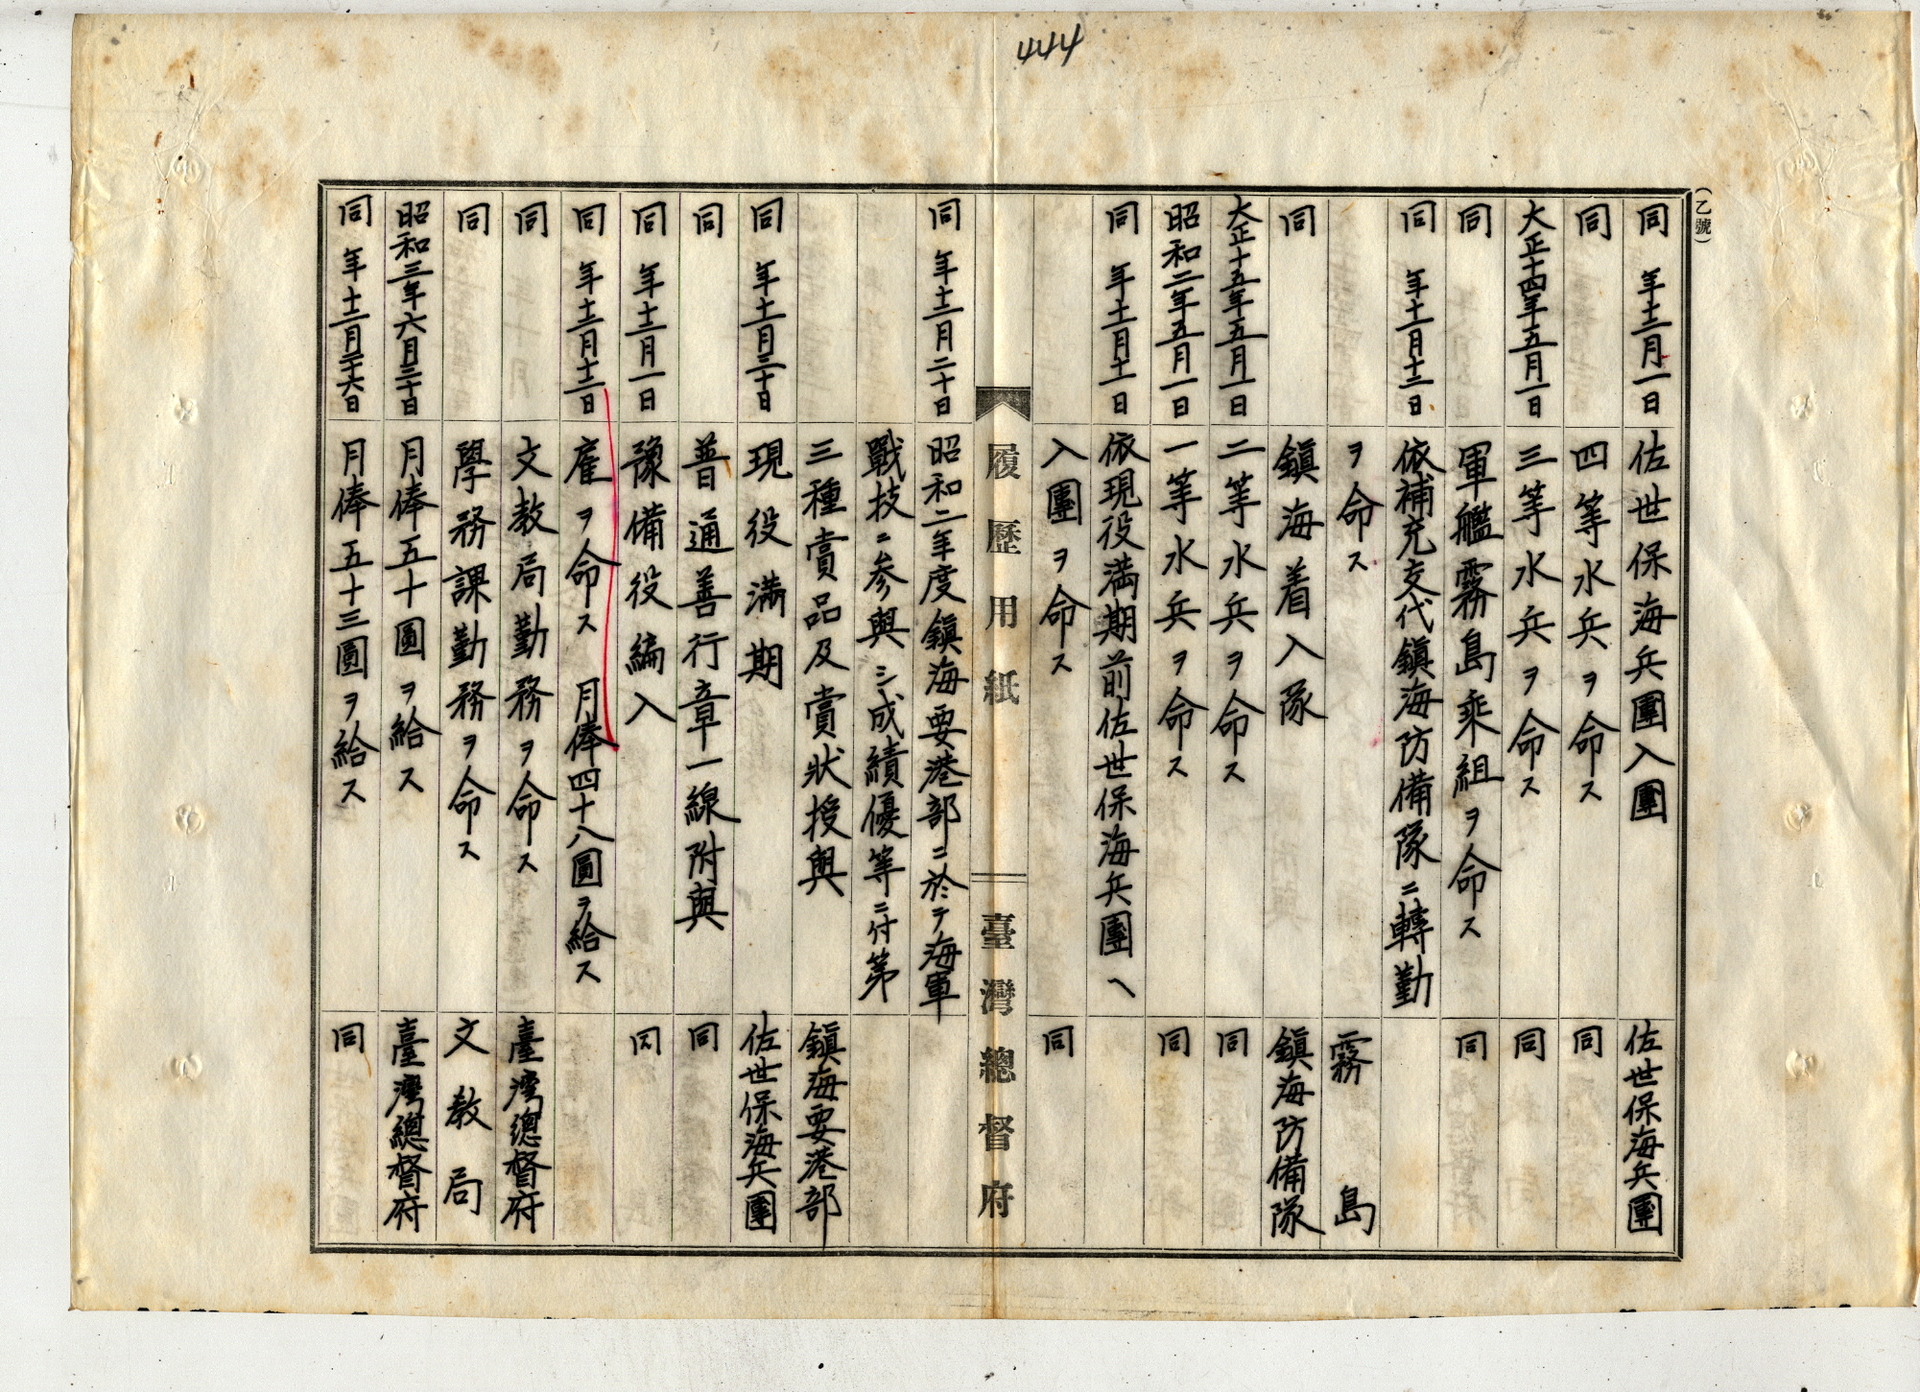 444
(乙號)
同 年十二月一日 佐世保海兵團入團 佐世保海兵團
同 四等水兵ヲ命ス 同
大正十四年五月一日 三等水兵ヲ命ス 同
同 軍艦霧島乘組ヲ命ス 同
同 年十二月十二日 依補充交代鎮海防備隊ニ轉勤
ヲ命ス 霧島
同 鎮海着入隊 鎮海防備隊
大正十五年五月一日 二等水兵ヲ命ス 同
昭和二年五月一日 一等水兵ヲ命ス 同
同 年十一月十一日 依現役満期前佐世保海兵團ヘ
入團ヲ命ス 同
履歷用紙 臺灣總督府
同 年十一月二十日 昭和二年度鎮海要港部ニ於テ海軍
戰技ニ参與シ成績優等ニ付第
三種賞品及賞狀授與 鎮海要港部
同 年十一月三十日 現役満期 佐世保海兵團
同 普通善行章一線附與 同
同 年十二月一日 豫備役編入 同
同 年十二月十二日 雇ヲ命ス 月俸四十八圓ヲ給ス
同 文教局勤務ヲ命ス 臺灣總督府
同 學務課勤務ヲ命ス 文教局
昭和三年六月三十日 月俸五十圓ヲ給ス 臺灣總督府
同 年十二月二十六日 月俸五十三圓ヲ給ス 同